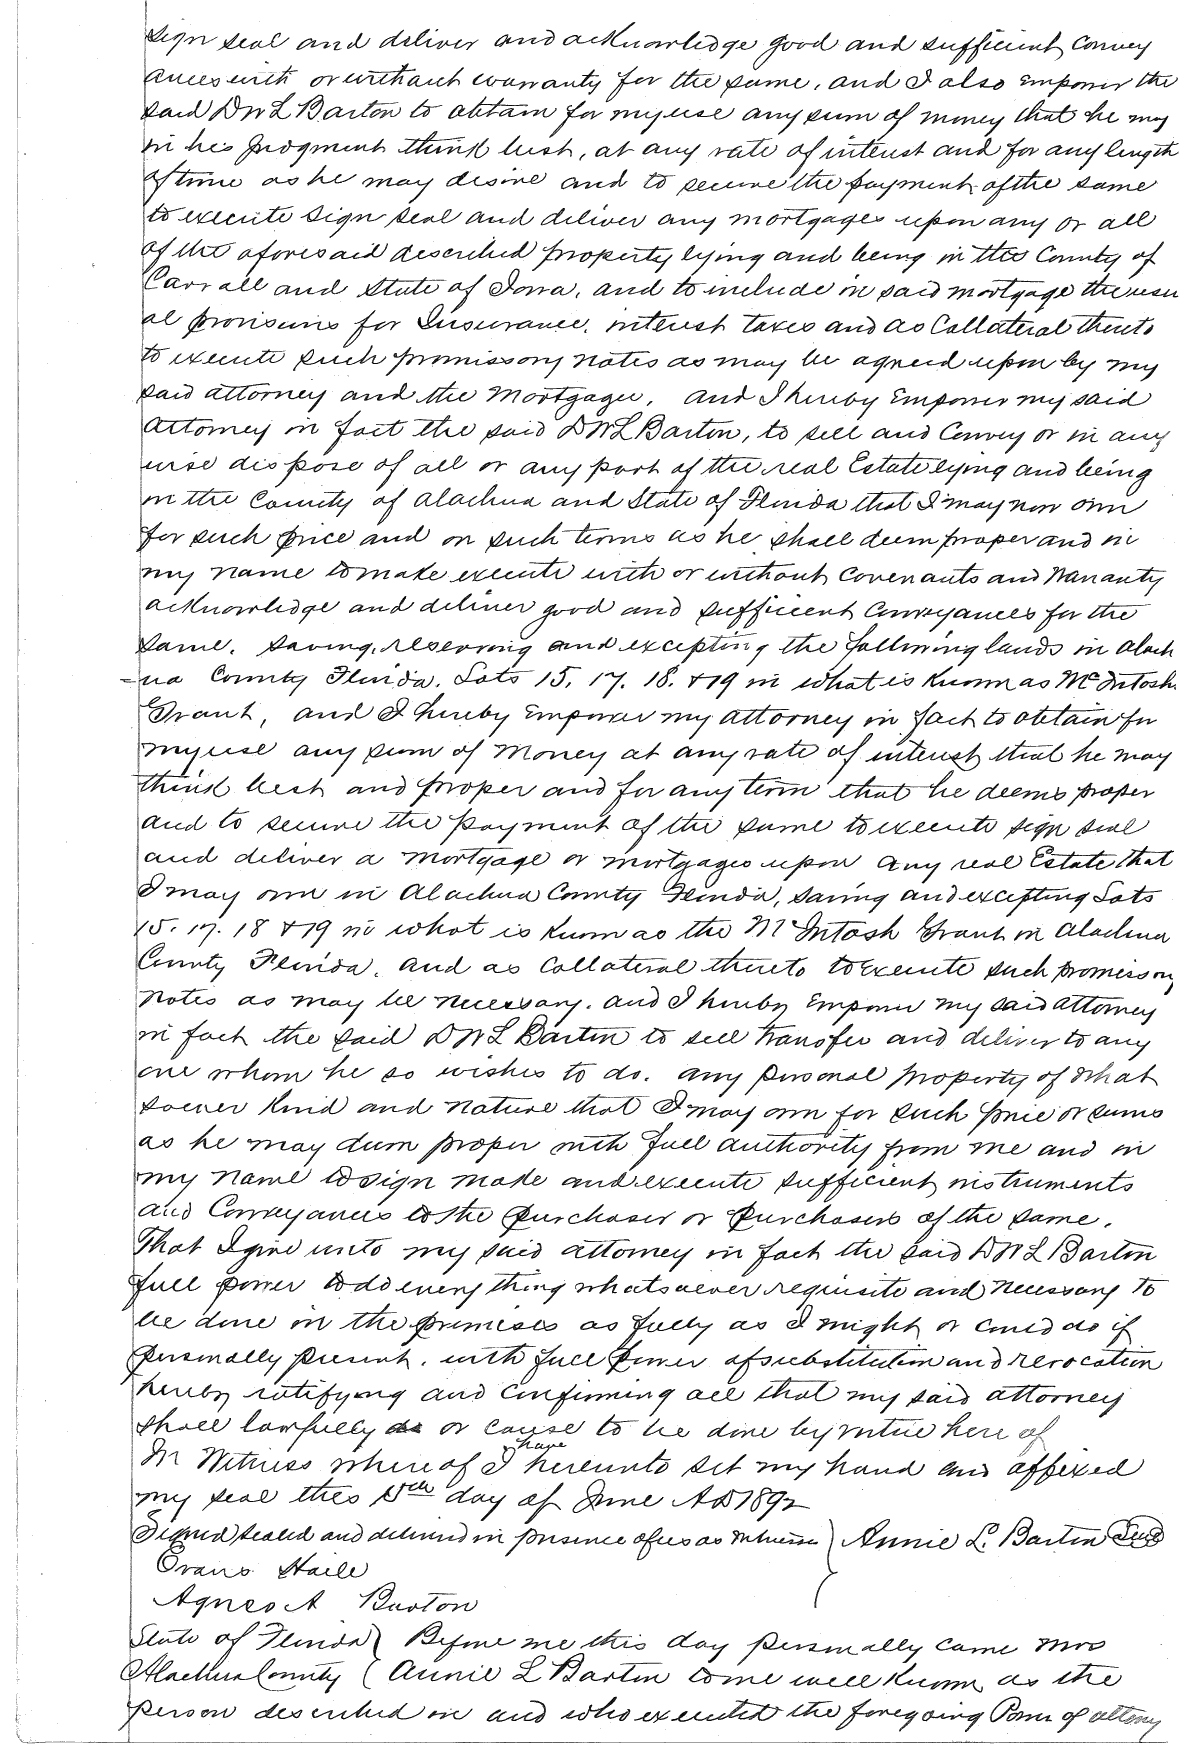 sign seal and deliver and acknowledge good and sufficient convey
ances with or without warranty for the same, and I also empower the
said D W L Barton to obtain for my use any sum of money that he may
in his judgment think best, at any rate of interest and for any length
of time as he may desire and to secure the payment of the same
to execute sign seal and deliver any mortgages upon any or all
of the aforesaid described property lying and being in the County of
Carroll and State of Iowa, and to include in said mortgage the usu
al provisions for Insurance, interest taxes and as Collateral thereto
to execute such promissory notes as may be agreed upon by my
said attorney and the Mortgagee. And I hereby Empower my said
Attorney in fact the said D W L Barton, to sell and Convey or in any
wise dispose of all or any part of the real Estate lying and being
in the County of Alachua and State of Florida that I may now own
for such price and on such terms as he shall deem proper and in
my name to make execute with or without Covenants and Warranty
acknowledge and deliver good and sufficient Conveyances for the
same. Saving, reserving and excepting the following lands in Alach
=ua County Florida. Lots 15, 17. 18. & 19 in what is known as McIntosh
Grant, and I hereby Empower my attorney in fact to obtain for
my use any sum of Money at any rate of interest that he may
think best and proper and for any term that he deems proper
and to secure the payment of the same to execute sign seal
and deliver a mortgage or mortgages upon any real Estate that
I may own in Alachua County Florida, saving and excepting Lots
15. 17. 18 & 19 in what is known as the McIntosh Grant in Alachua
County Florida, and as Collateral thereto to execute such promissory
notes as may be necessary. and I hereby Empower my said attorney
in fact the said D W L Barton to sell transfer and deliver to any
one whom he so wishes to do. any personal property of what
soever kind and nature that I may own for such price or sums
as he may deem proper with full authority from me and in
my name to sign make and execute sufficient instruments
and Conveyances to the purchaser or purchasers of the same.
That I give unto my said attorney in fact the said D W L Barton
full power to do every thing whatsoever requisite and necessary to
be done in the premises as fully as I might or could do if
personally present. with full power of substitution and revocation
hereby ratifying and confirming all that my said attorney
shall lawfully do or cause to be done by virtue here of
In Witness where of I have hereunto set my hand and affixed
my seal this 15th day of June AD 1892
Signed sealed and delivered in presence of us as Witnesses } Annie L. Barton Seal
Evans Haile
Agnes A Barton
State of Florida } Before me this day personally came Mrs
Alachua County { Annie L Barton to me well known as the
person described in and who executed the foregoing Power of attorny